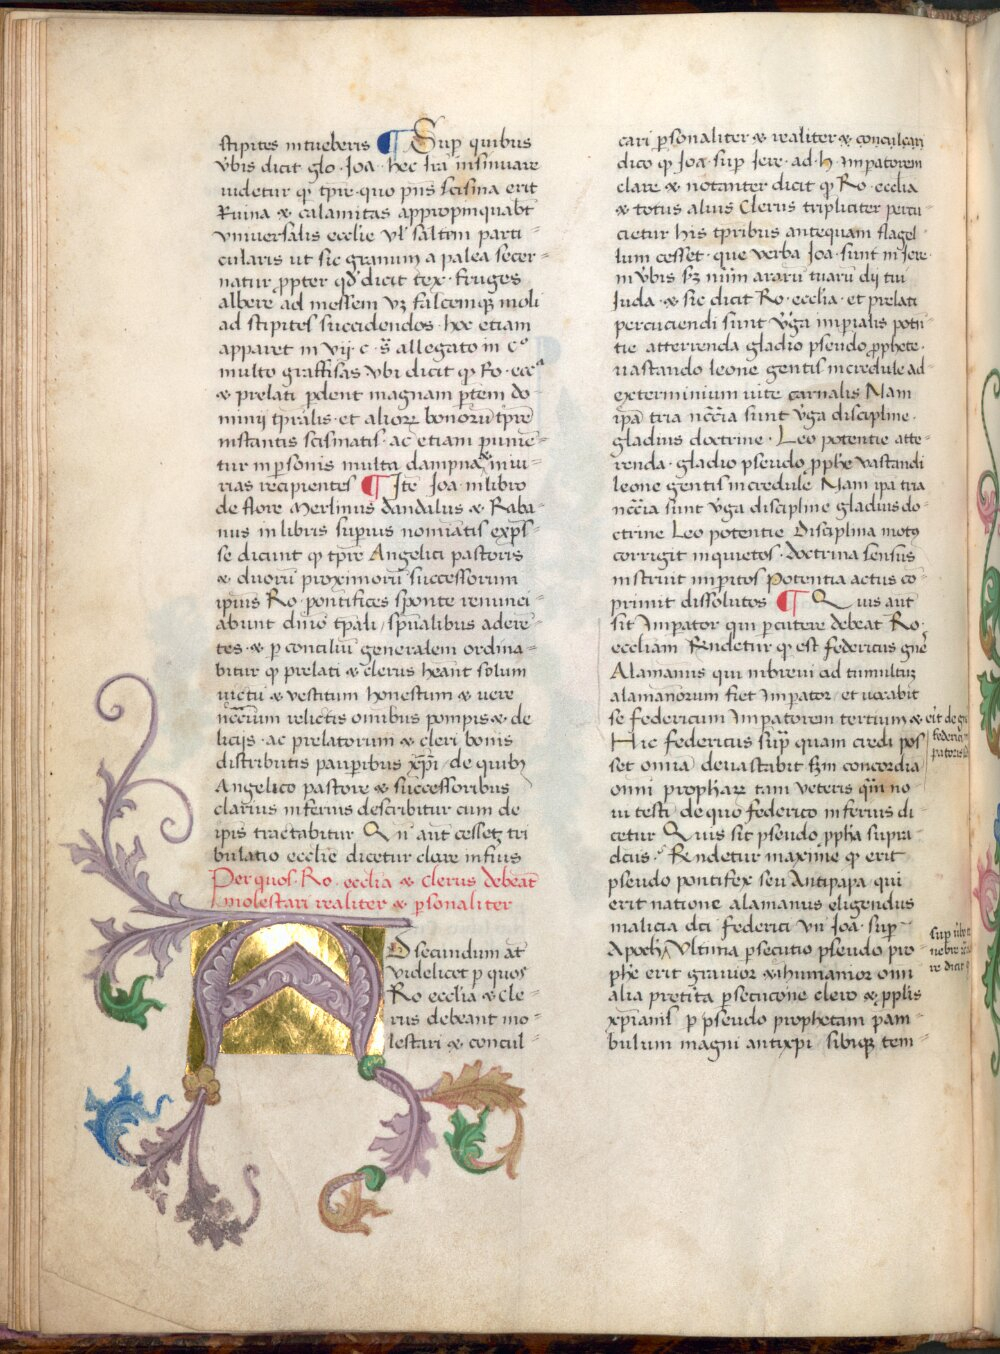 stipites intueberis ¶ Sup quibus
v̄bis dicit glo · Joa · hec lr̄a insinuare
uidetur qͥ tpr̄e · quo pn̄s scisma erit
Ruina & calamitas appropinquabt̄
vniuersalis ecclie vl̄ saltem parti-
cularis ut sic granum a palea secer-
natur ꝓpter qd̓ dicit tex · fruges
albere ad messem vꝫ falcemqꝫ moli
ad stipites succidendos · hoc etiam
apparet in vij · c · s̄ allegato in cº
multo graffisas vbi dicit ꝙ Ro · eccª
& prelati ꝑdent magnam ꝑtem do-
minij tpr̄alis · et alioꝝ bonorū tpr̄e
instantis scismatis · ac etiam punie-
tur in ꝑsonis multa dampna & iniu-
rias recipientes ¶ Ite̅ Joa · in libro
de flore Merlinus dandalus & Raba-
nus in libris superius noi̅atis expr̄s-
se dicunt ꝙ tpr̄e Angelici pastoris
& duorū proximorū successorum
ipius Ro · pontifices sponte renunci-
abunt dn̄io tp̄ali / spūalibus adere̅-
tes · & ꝑ conciliū generalem ordina-
bitur ꝙ prelati & clerus heant solum
uictū & vestitum honestum & uere
nc̄c̄rium relictis omībus pompis & de
licijs · ac prelatorum & cleri bonis
distributis pauꝑibus xp̄i / de quibꝫ
Angelico pastore & successoribus
clarius inferius describitur cum de
ip̄is tractabitur Qn̄ aut cesset tri
bulatio ecclie dicetur clare infius
Per quos · Ro · ecclia & clerus debeat
molestari realiter & ꝑsonaliter
AD secundum at̄
videlicet ꝑ quos
Ro ecclia & cle-
rus debeant mo-
lestari & concul-
cari ꝑsonaliter & realiter & conculcari
dico ꝙ Joa · sup Jere · ad · h · Imꝑatorem
clare & notanter dicit ꝙ Ro · ecclia
& totus alius Clerus tripliciter percu-
cietur his tpribus antequam flagel-
lum cesset · que verba Joa · sunt in Jere ·
in v̄bis sꝫ nūm ararū tuarū dij tui
Juda · & sic dicit Ro · ecclia · et prelati
percuciendi sunt v̄ga imꝑialis potn̄-
tie atterrenda gladio pseudo ꝓphete ·
uastando leone gentis incredule ad-
exterminium uite carnalis Nam
ip̄a tria nc̄c̄ia sunt v̄ga discipline ·
gladius doctrine · Leo potentie atte-
renda · gladio pseudo ꝓphe vastandi
leone gentis incredule Nam ipa tria
nc̄c̄ia sunt v̄ga discipline gladius do-
ctrine Leo potentie Disciplina motꝫ
corrigit inquietos · doctrina sensus
instruit imꝑitos Potentia actus co-
primit dissolutos ¶ Quis aut
sit Imꝑator qui ꝑcutere debeat Ro ·
eccliam Rn̄detur ꝙ est federicus gn̄e
Alamanus qui in breui ad tumultuꝫ
alamanorum fiet Imꝑator / et uocabit
se federicum Imꝑatorem tertium &
Hic federicus sup̄ quam credi pos
set omīa deuastabit sm̄ concordia
omni prophaꝝ tam Veteris qm̄ no-
ui testi · de quo federico inferius di
cetur Quis sit pseudo ꝓpha supra
dcūs · Rn̄detur maxime ꝙ erit
pseudo pontifex seu Antipapa / qui
erit natione alamanus eligendus
malicia dci federici vn̄ Joa · sup ·
Apoch · Vltima ꝑsecutio pseudo pro-
phe erit grauior & ihumanior omi
alia pretita ꝑsecucōne clero & ꝓplis
xpianis ꝑ pseudo prophetam pam-
bulum magni antixp̄i · sibiqꝫ tem-
federici